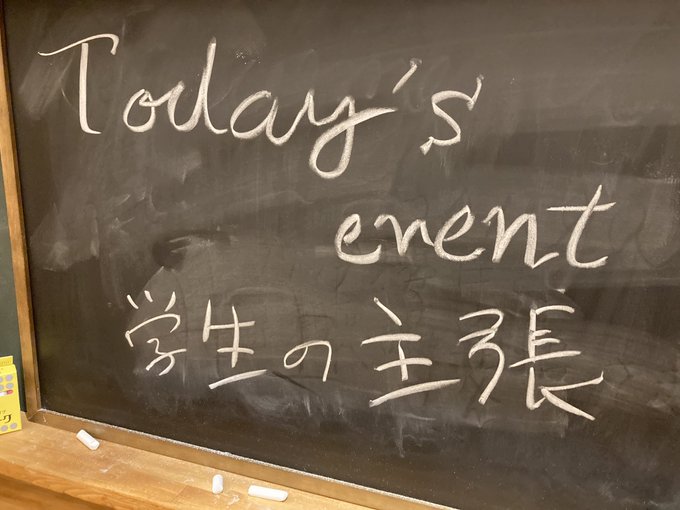 Today's
event
学生の主張